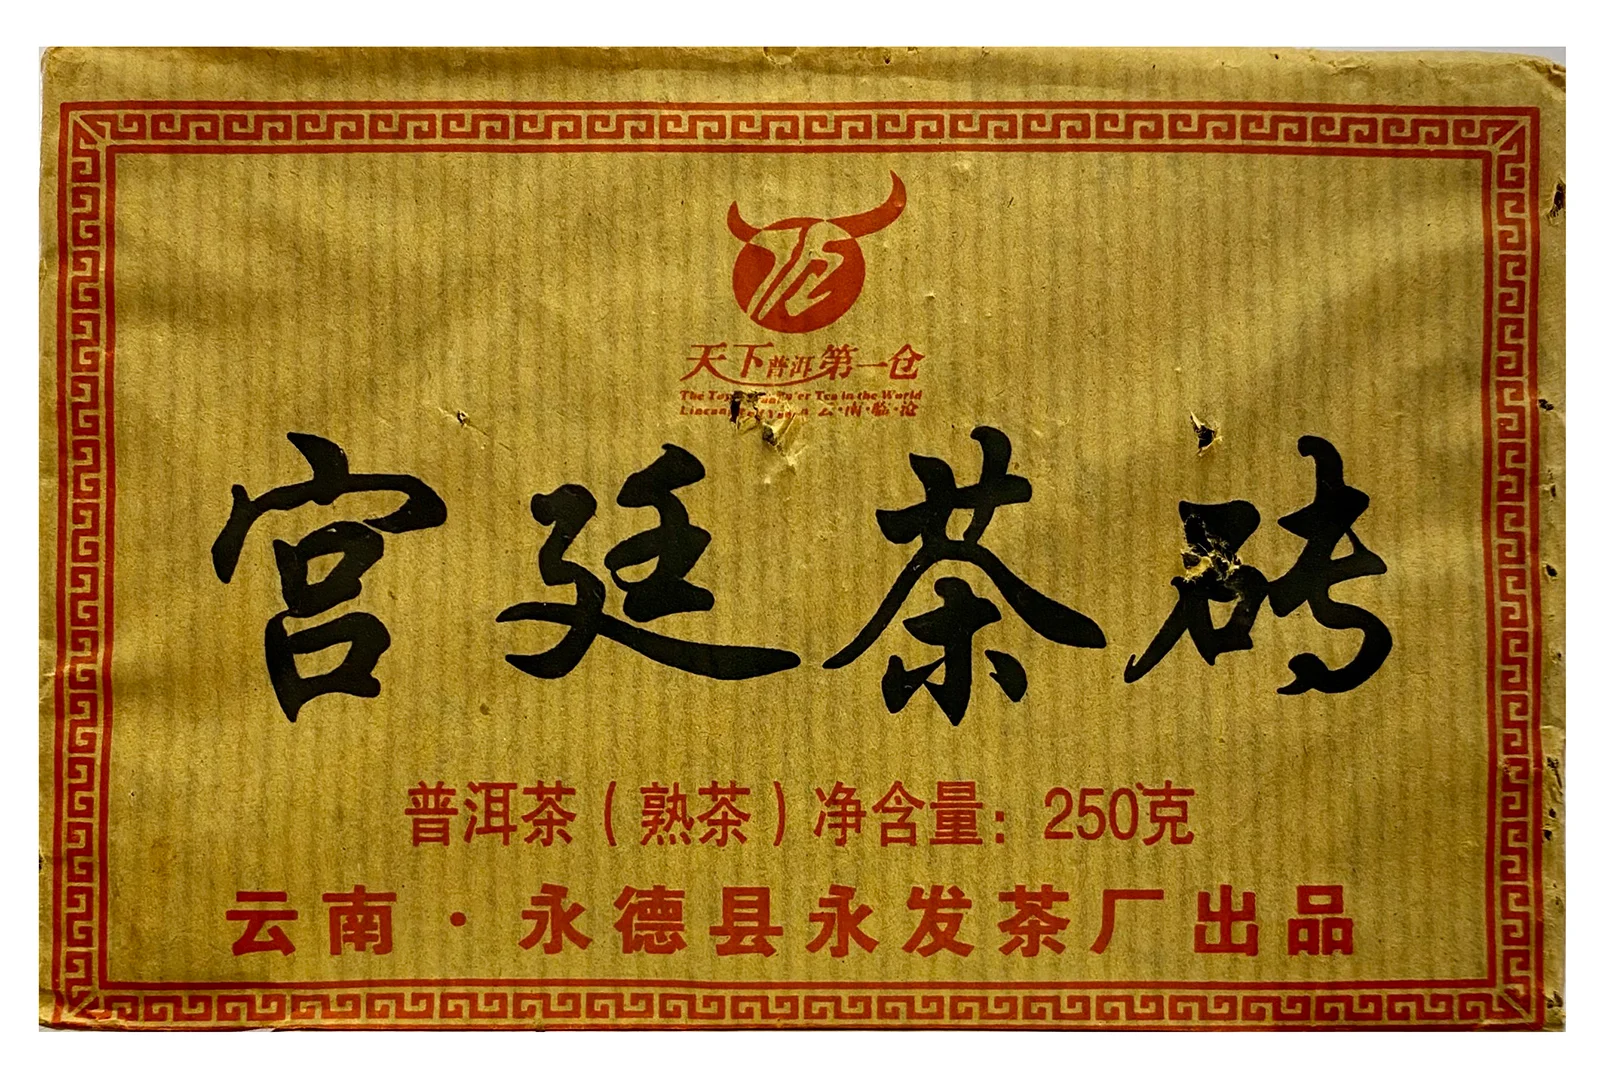 天下普洱第一仓
The Top Pu'er Tea in the World
云·南·临·沧
宫廷茶砖
普洱茶(熟茶)净含量:250克
云南·永德县永发茶厂出品